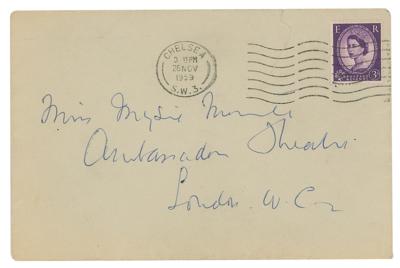 CHELSEA
26 NOV
1959
S.W.3.
E R
3D
Miss Mysie Monte
Ambassadors Theatre
London. W.C.2